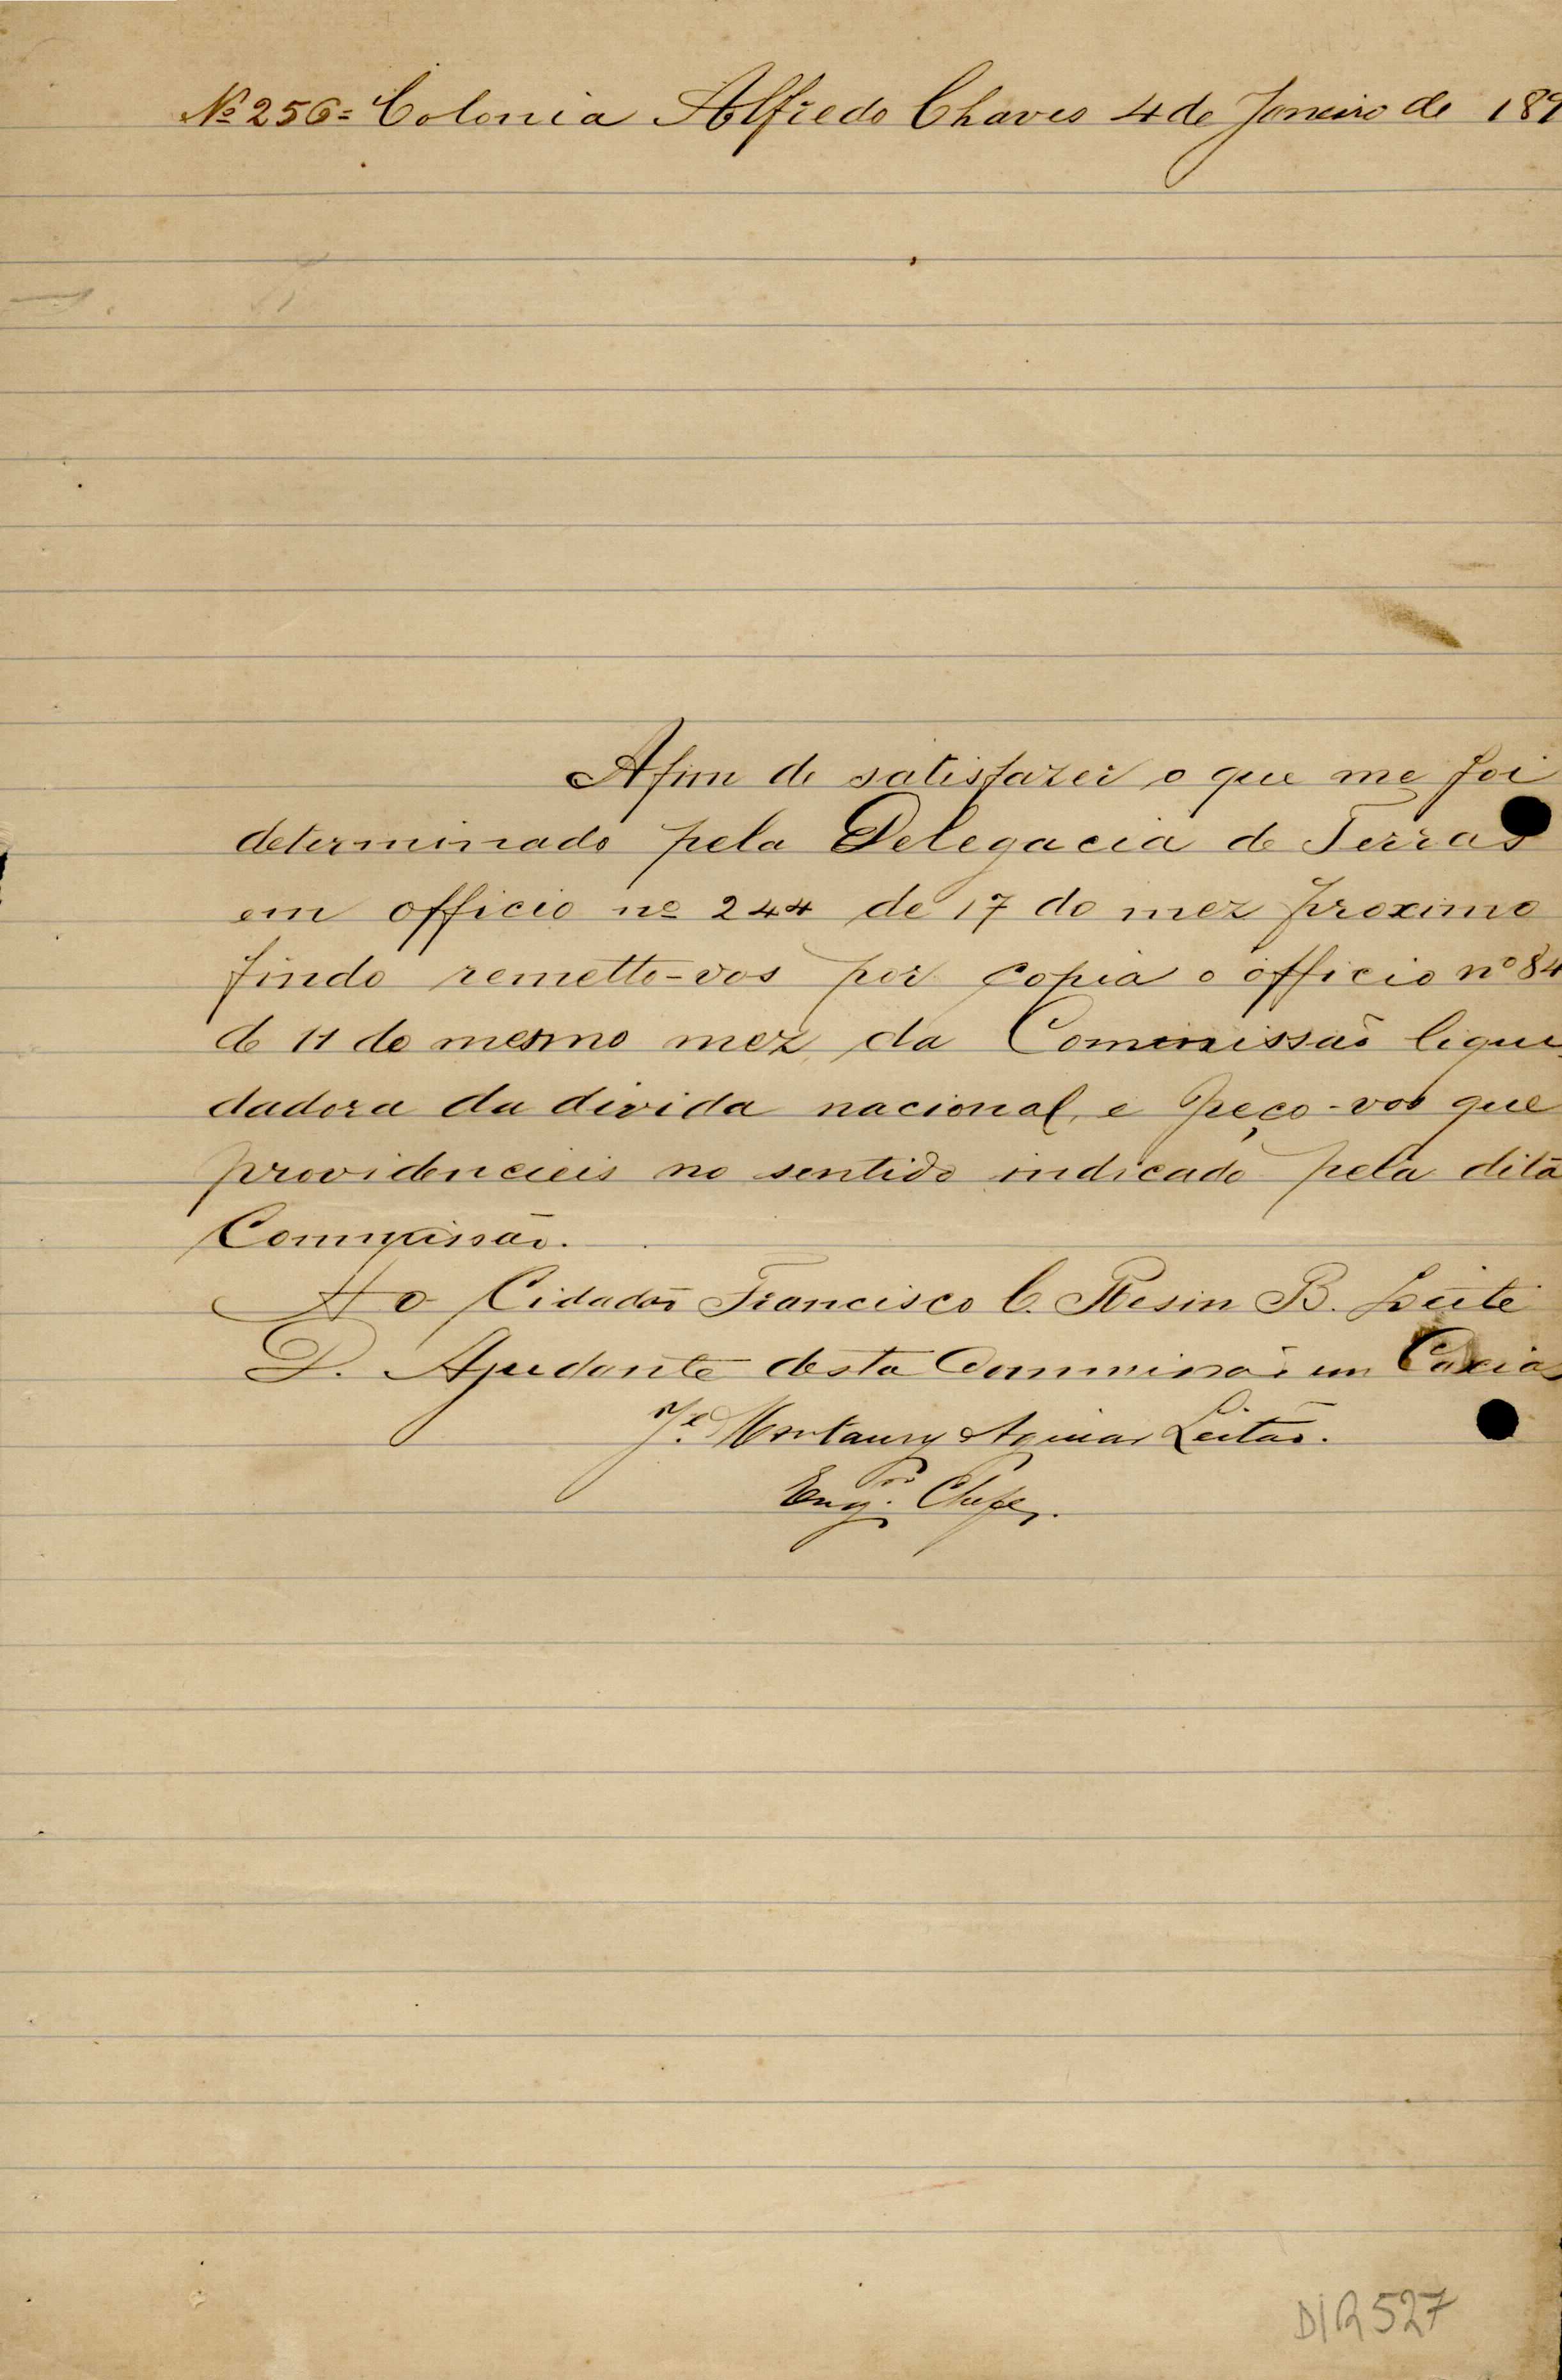 Nº 256 = Colonia Alfredo Chaves 4 de Janeiro de 189
Afim de satisfazer o que me foi
determinado pela Delegacia de Terras
em officio nº 244 de 17 do mez proximo
findo remetto-vos por copia o officio nº 84
de 11 do mesmo mez da Commissão liqui
dadora da divida nacional, e peço-vos que
providencieis no sentido indicado pela dita
Commissão.
Ao Cidadão Francisco C. Resin B. Leite
D. Ajudante desta Commissão em Caxias
Jé. Montaury Aguiar Leitão.
Engrº. Chefe.
DIR 527